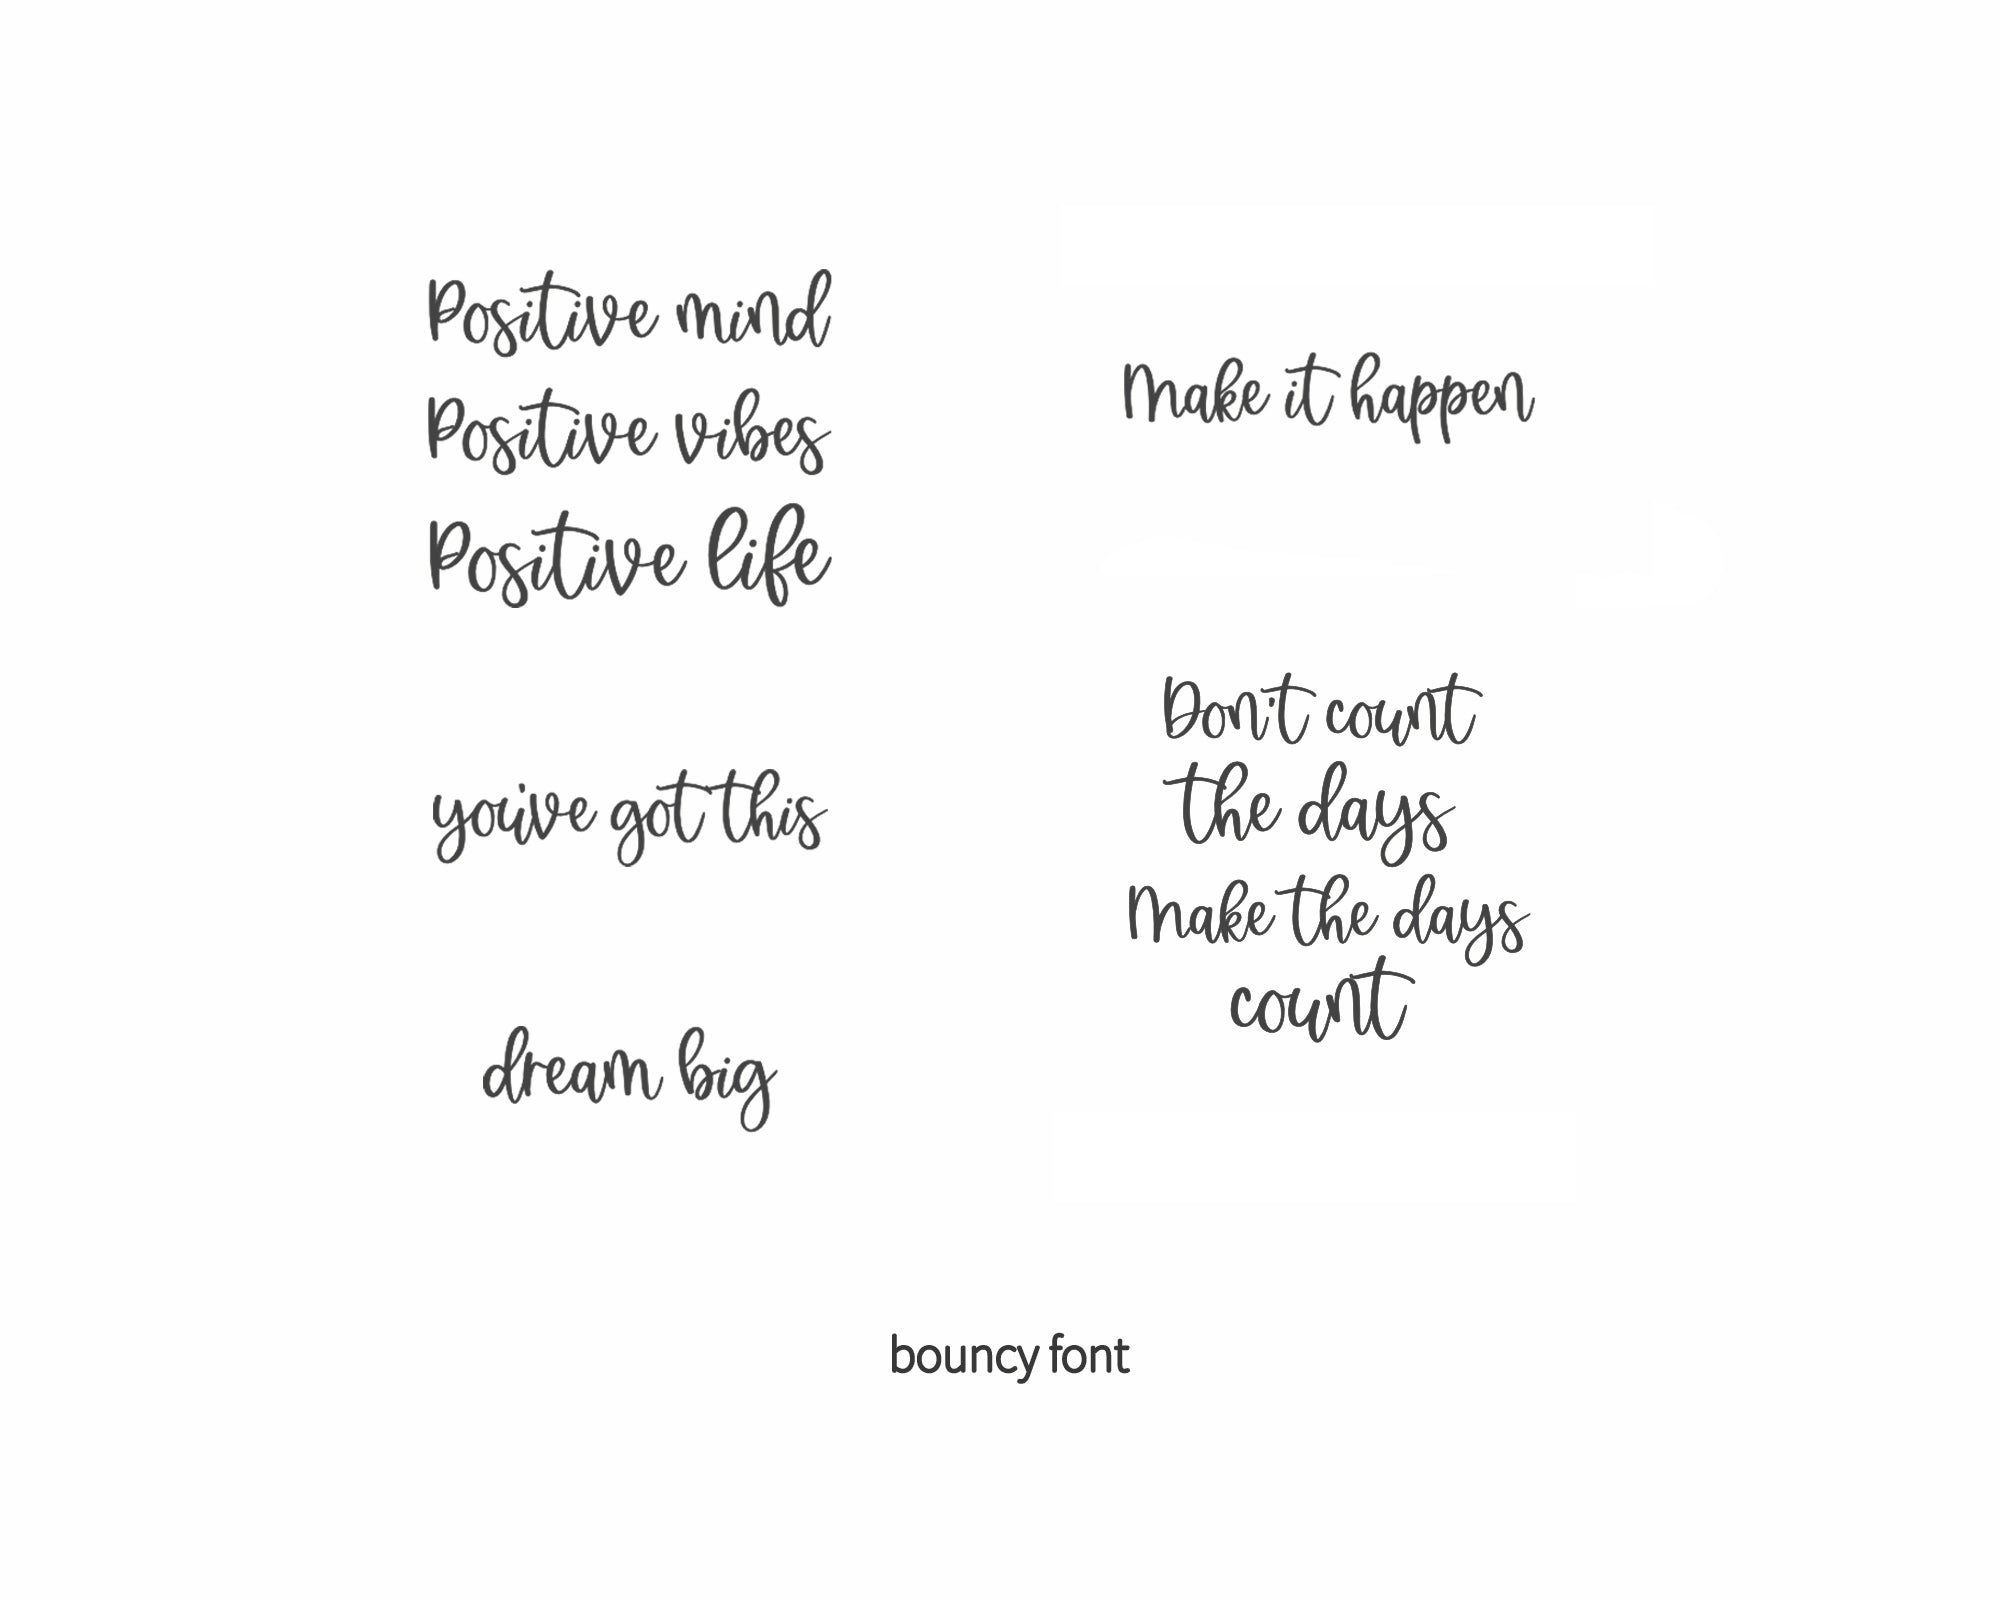 Positive mind
Positive vibes
Positive life
you've got this
dream big
Make it happen
Don't count
the days
Make the days
count
bouncy font